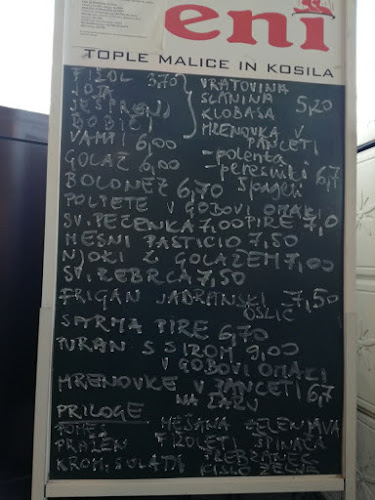 eni
TOPLE MALICE IN KOSILA
FIŽOL 3,70 VRATOVINA
JOTA SLANINA
JEŠPRENJ KLOBASA 5,20
BOBIČI HRENOVKA V
VAMPI 6,00 PANCETI
GOLAŽ 6,00 - polenta
BOLONEZ 6,70 Špageti
POLPETE V GOBOVI OMAKI
SV. PEČENKA 7,00 PIRE 7,0
MESNI PASTICIO 7,50
NJOKI Z GOLAŽEM 7,00
SV. REBRCA 7,50
FRIGAN JADRANSKI 7,50
OSLIČ
SARMA PIRE 6,70
PURAN S SIROM 9,00
V GOBOVI OMAKI
HRENOVKE V PANCETI 6,7
NA ŽARU
PRILOGE
POMES MEŠANA ZELENJAVA
PRAŽEN FIŽOLETI ŠPINAČA
KROM. SOLATA PREBRANEC
KISLO ZELJE